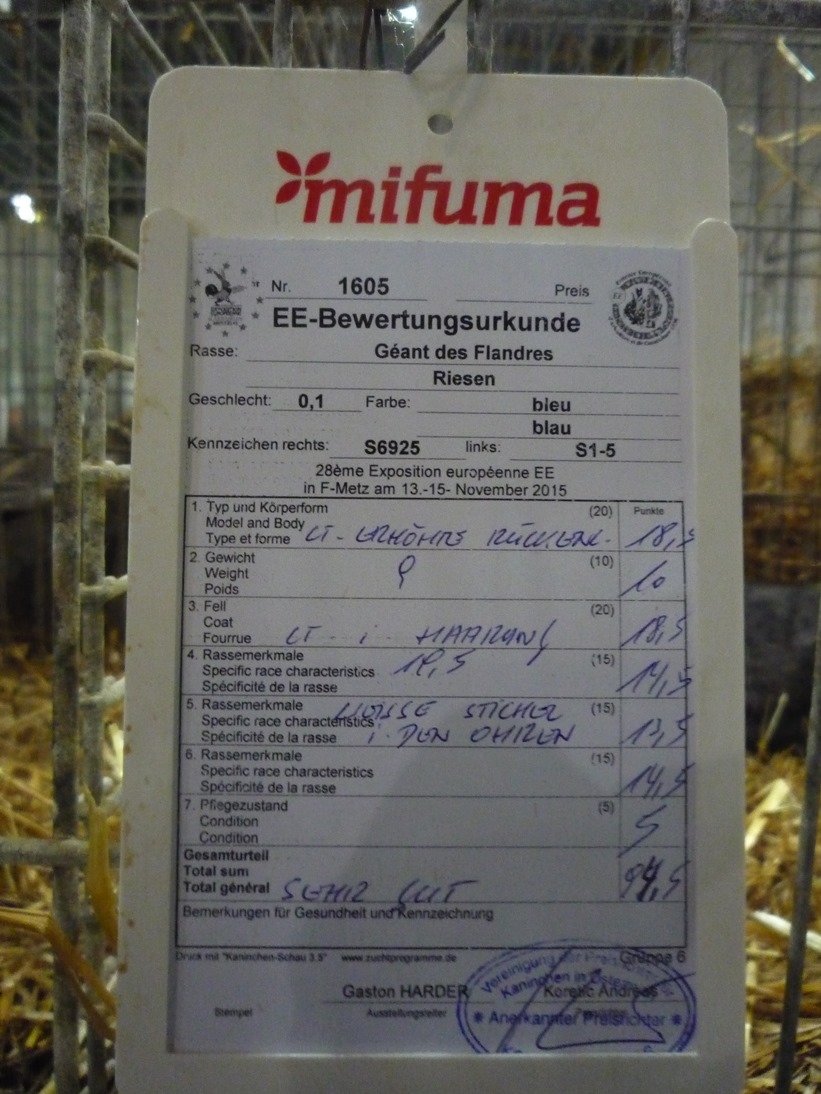 mifuma
Nr. 1605 Preis
EE-Bewertungsurkunde
Rasse: Géant des Flandres
Riesen
Geschlecht: 0,1 Farbe: bleu
blau
Kennzeichen rechts: S6925 links: S1-5
28ème Exposition européenne EE
in F-Metz am 13.-15- November 2015
1. Typ und Körperform (20) Punkte
Model and Body
Type et forme LT - ERHÖHTE 18,5
2. Gewicht (10)
Weight
Poids 10
3. Fell (20)
Coat
Fourrue LT - i - HAARUNG 18,5
4. Rassemerkmale (15)
Specific race characteristics 19,5
Spécificité de la rasse 14,5
5. Rassemerkmale WEISSE STICHEL (15)
Specific race characteristics
Spécificité de la rasse i DEN OHREN 13,5
6. Rassemerkmale (15)
Specific race characteristics
Spécificité de la rasse 14,5
7. Pflegezustand (5)
Condition
Condition 5
Gesamturteil
Total sum
Total général SEHR GUT 94,5
Bemerkungen für Gesundheit und Kennzeichnung
Druck mit "Kaninchen-Schau 3.5" www.zuchtprogramme.de Gruppe 6
Vereinigung der Preisrichter
Kaninchen in
Gaston HARDER Koretic Andreas
Stempel Ausstellungsleiter
* Anerkannter Preisrichter *